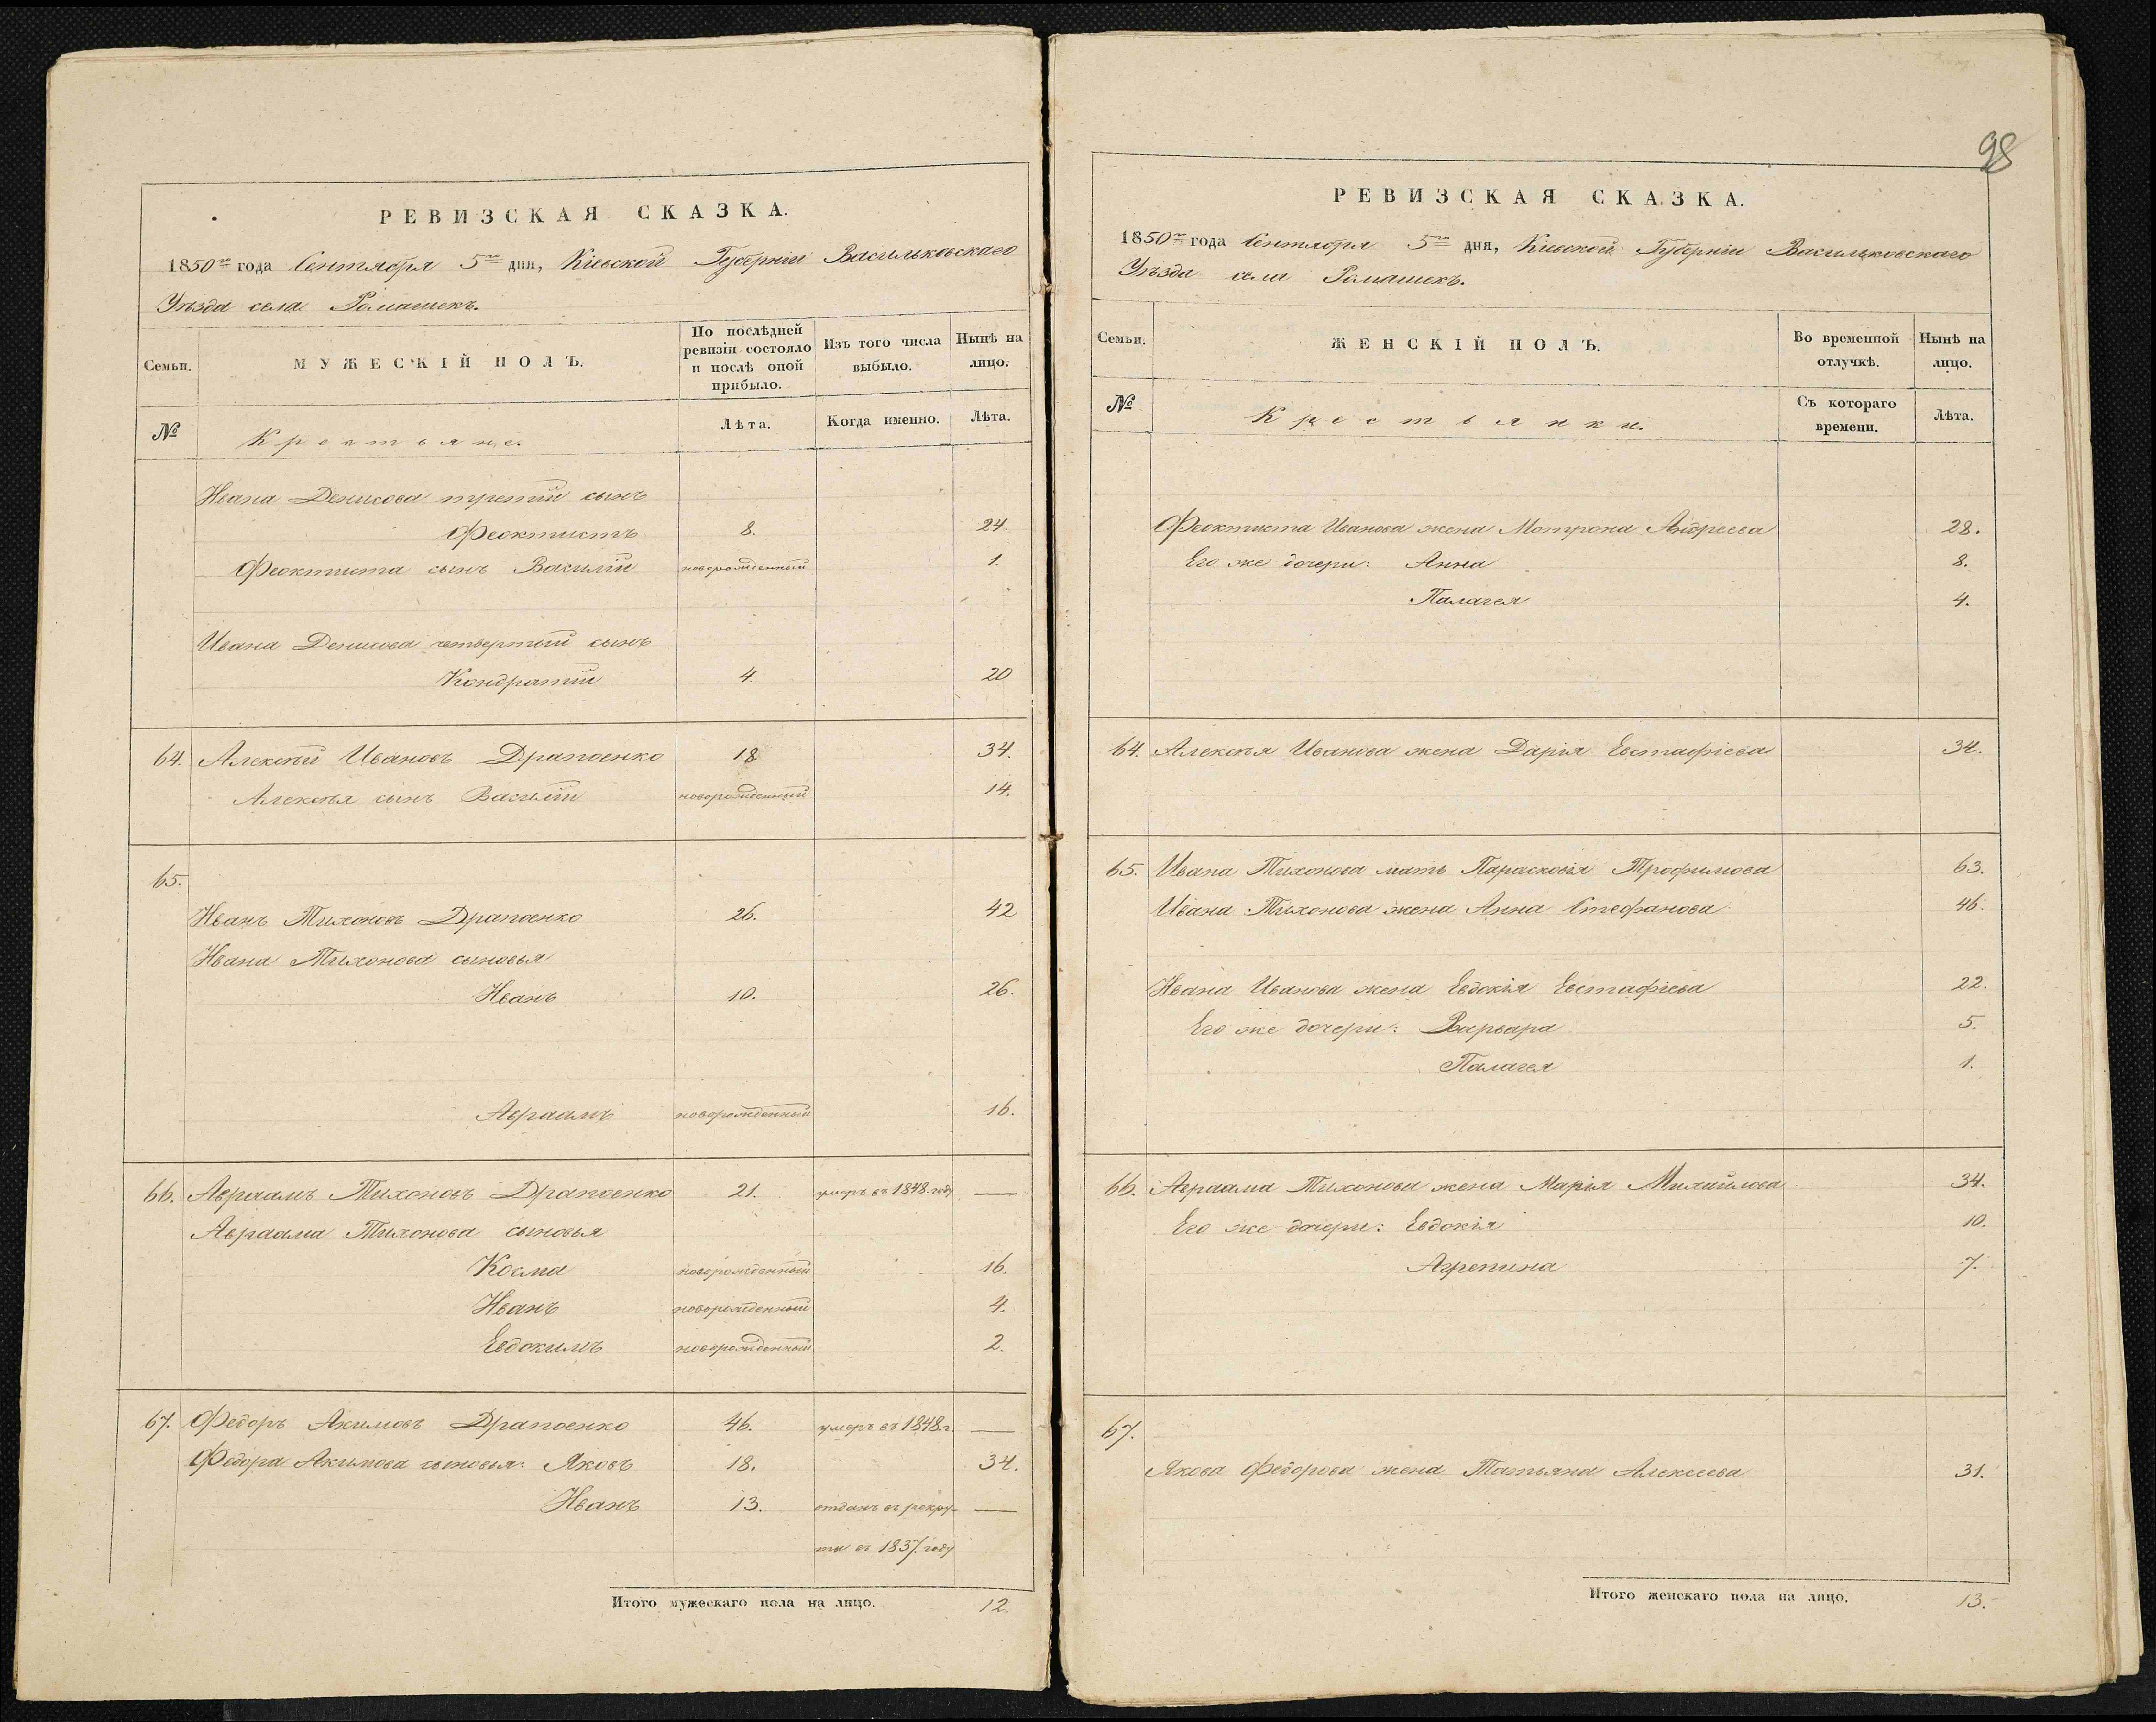 РЕВИЗСКАЯ СКАЗКА.
1850го года Сентября 5го дня, Кіевской Губерніи Васильковскаго
Уѣзда села Ромашекъ.
Семьи.
МУЖЕСКІЙ ПОЛЪ.
По послѣдней ревизіи состояло и послѣ оной прибыло.
Изъ того числа выбыло.
Нынѣ на лицо.
№
Крестьяне.
Лѣта.
Когда именно.
Лѣта.
Ивана Денисова третій сынъ
Феоктистъ 8. 24.
Феоктиста сынъ Василій новорожденный 1.
Ивана Денисова четвертый сынъ
Кондратій 4 20
64. Алексѣй Ивановъ Драпоенко 18 34.
Алексѣя сынъ Василій новорожденный 14.
65.
Иванъ Тихоновъ Драпоенко 26. 42
Ивана Тихонова сыновья
Иванъ 10. 26.
Авраамъ новорожденный 16.
66. Авраамъ Тихоновъ Драпоенко 21. умеръ въ 1848. году —
Авраама Тихонова сыновья
Козма новорожденный 16.
Иванъ новорожденный 4.
Евдокимъ новорожденный 2.
67. Федоръ Акимовъ Драпоенко 46. умеръ въ 1848 г. —
Федора Акимова сыновья: Яковъ 18. 34.
Иванъ 13. отданъ въ рекру- —
ты въ 1837. году
Итого мужескаго пола на лицо. 12.
98
РЕВИЗСКАЯ СКАЗКА.
1850го года Сентября 5го дня, Кіевской Губерніи Васильковскаго
Уѣзда села Ромашекъ.
Семьи.
ЖЕНСКІЙ ПОЛЪ.
Во временной отлучкѣ.
Нынѣ на лицо.
№
Крестьянки.
Съ котораго времени.
Лѣта.
Феоктиста Иванова жена Мотрона Андреева 28.
Его же дочери: Анна 8.
Палагея 4.
64. Алексѣя Иванова жена Дарія Евстафіева 34.
65. Ивана Тихонова мать Парасковія Трофимова 63.
Ивана Тихонова жена Анна Стефанова 46.
Ивана Иванова жена Евдокія Евстафіева 22.
Его же дочери: Варвара 5.
Палагея 1.
66. Авраама Тихонова жена Марія Михайлова 34.
Его же дочери: Евдокія 10.
Агрепина 7.
67.
Якова Федорова жена Татьяна Алексеева 31.
Итого женскаго пола на лицо. 13.